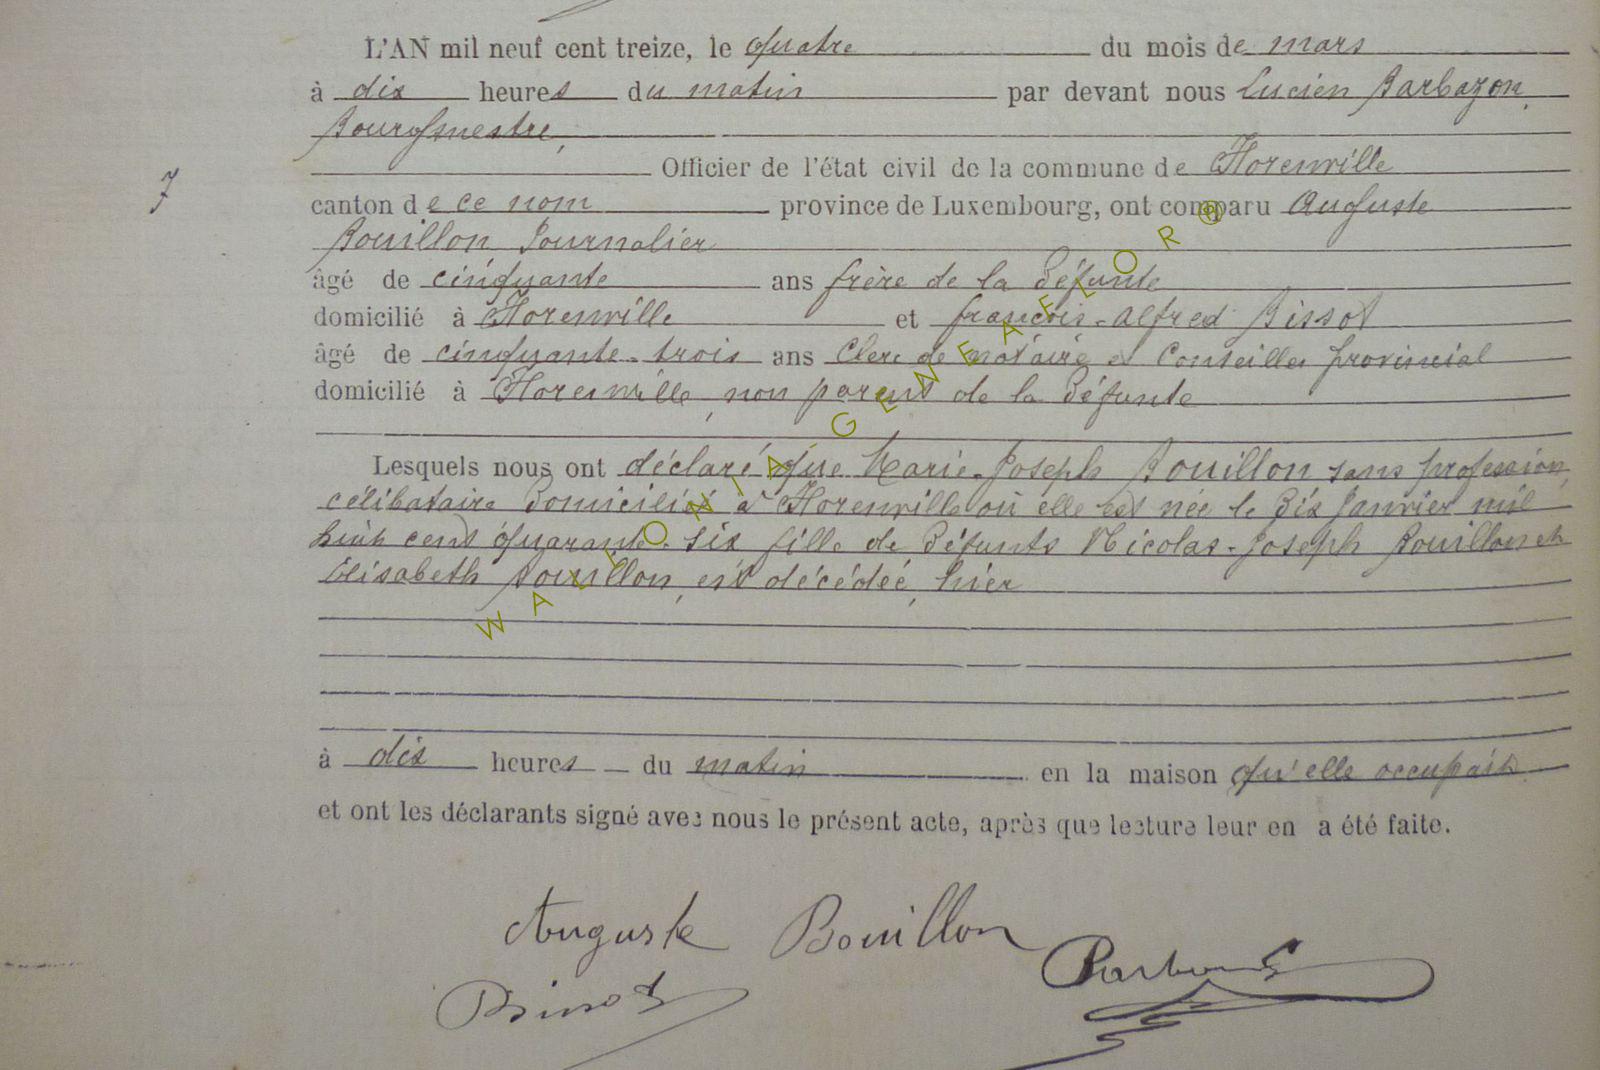 L'AN mil neuf cent treize, le quatre du mois de mars
à dix heures du matin par devant nous Lucien Barbazon,
Bourgmestre,
Officier de l'état civil de la commune de Florenville
7
canton de ce nom province de Luxembourg, ont comparu Auguste
Bouillon Journalier
âgé de cinquante ans frère de la défunte
domicilié à Florenville et françois-Alfred Bissot
âgé de cinquante-trois ans Clerc de notaire et Conseiller provincial
domicilié à Florenville, non parent de la défunte
Lesquels nous ont déclaré que Marie-Joseph Bouillon sans profession,
célibataire domiciliée à Florenville où elle est née le dix Janvier mil
huit cent quarante-six fille de défunts Nicolas-Joseph Bouillon et
Elisabeth Bouillon, est décédée, hier
à dix heures du matin en la maison qu'elle occupait
et ont les déclarants signé avec nous le présent acte, après que lecture leur en a été faite.
Auguste Bouillon
Barbazon
Bissot
WALLONIA GENEAFLOR®